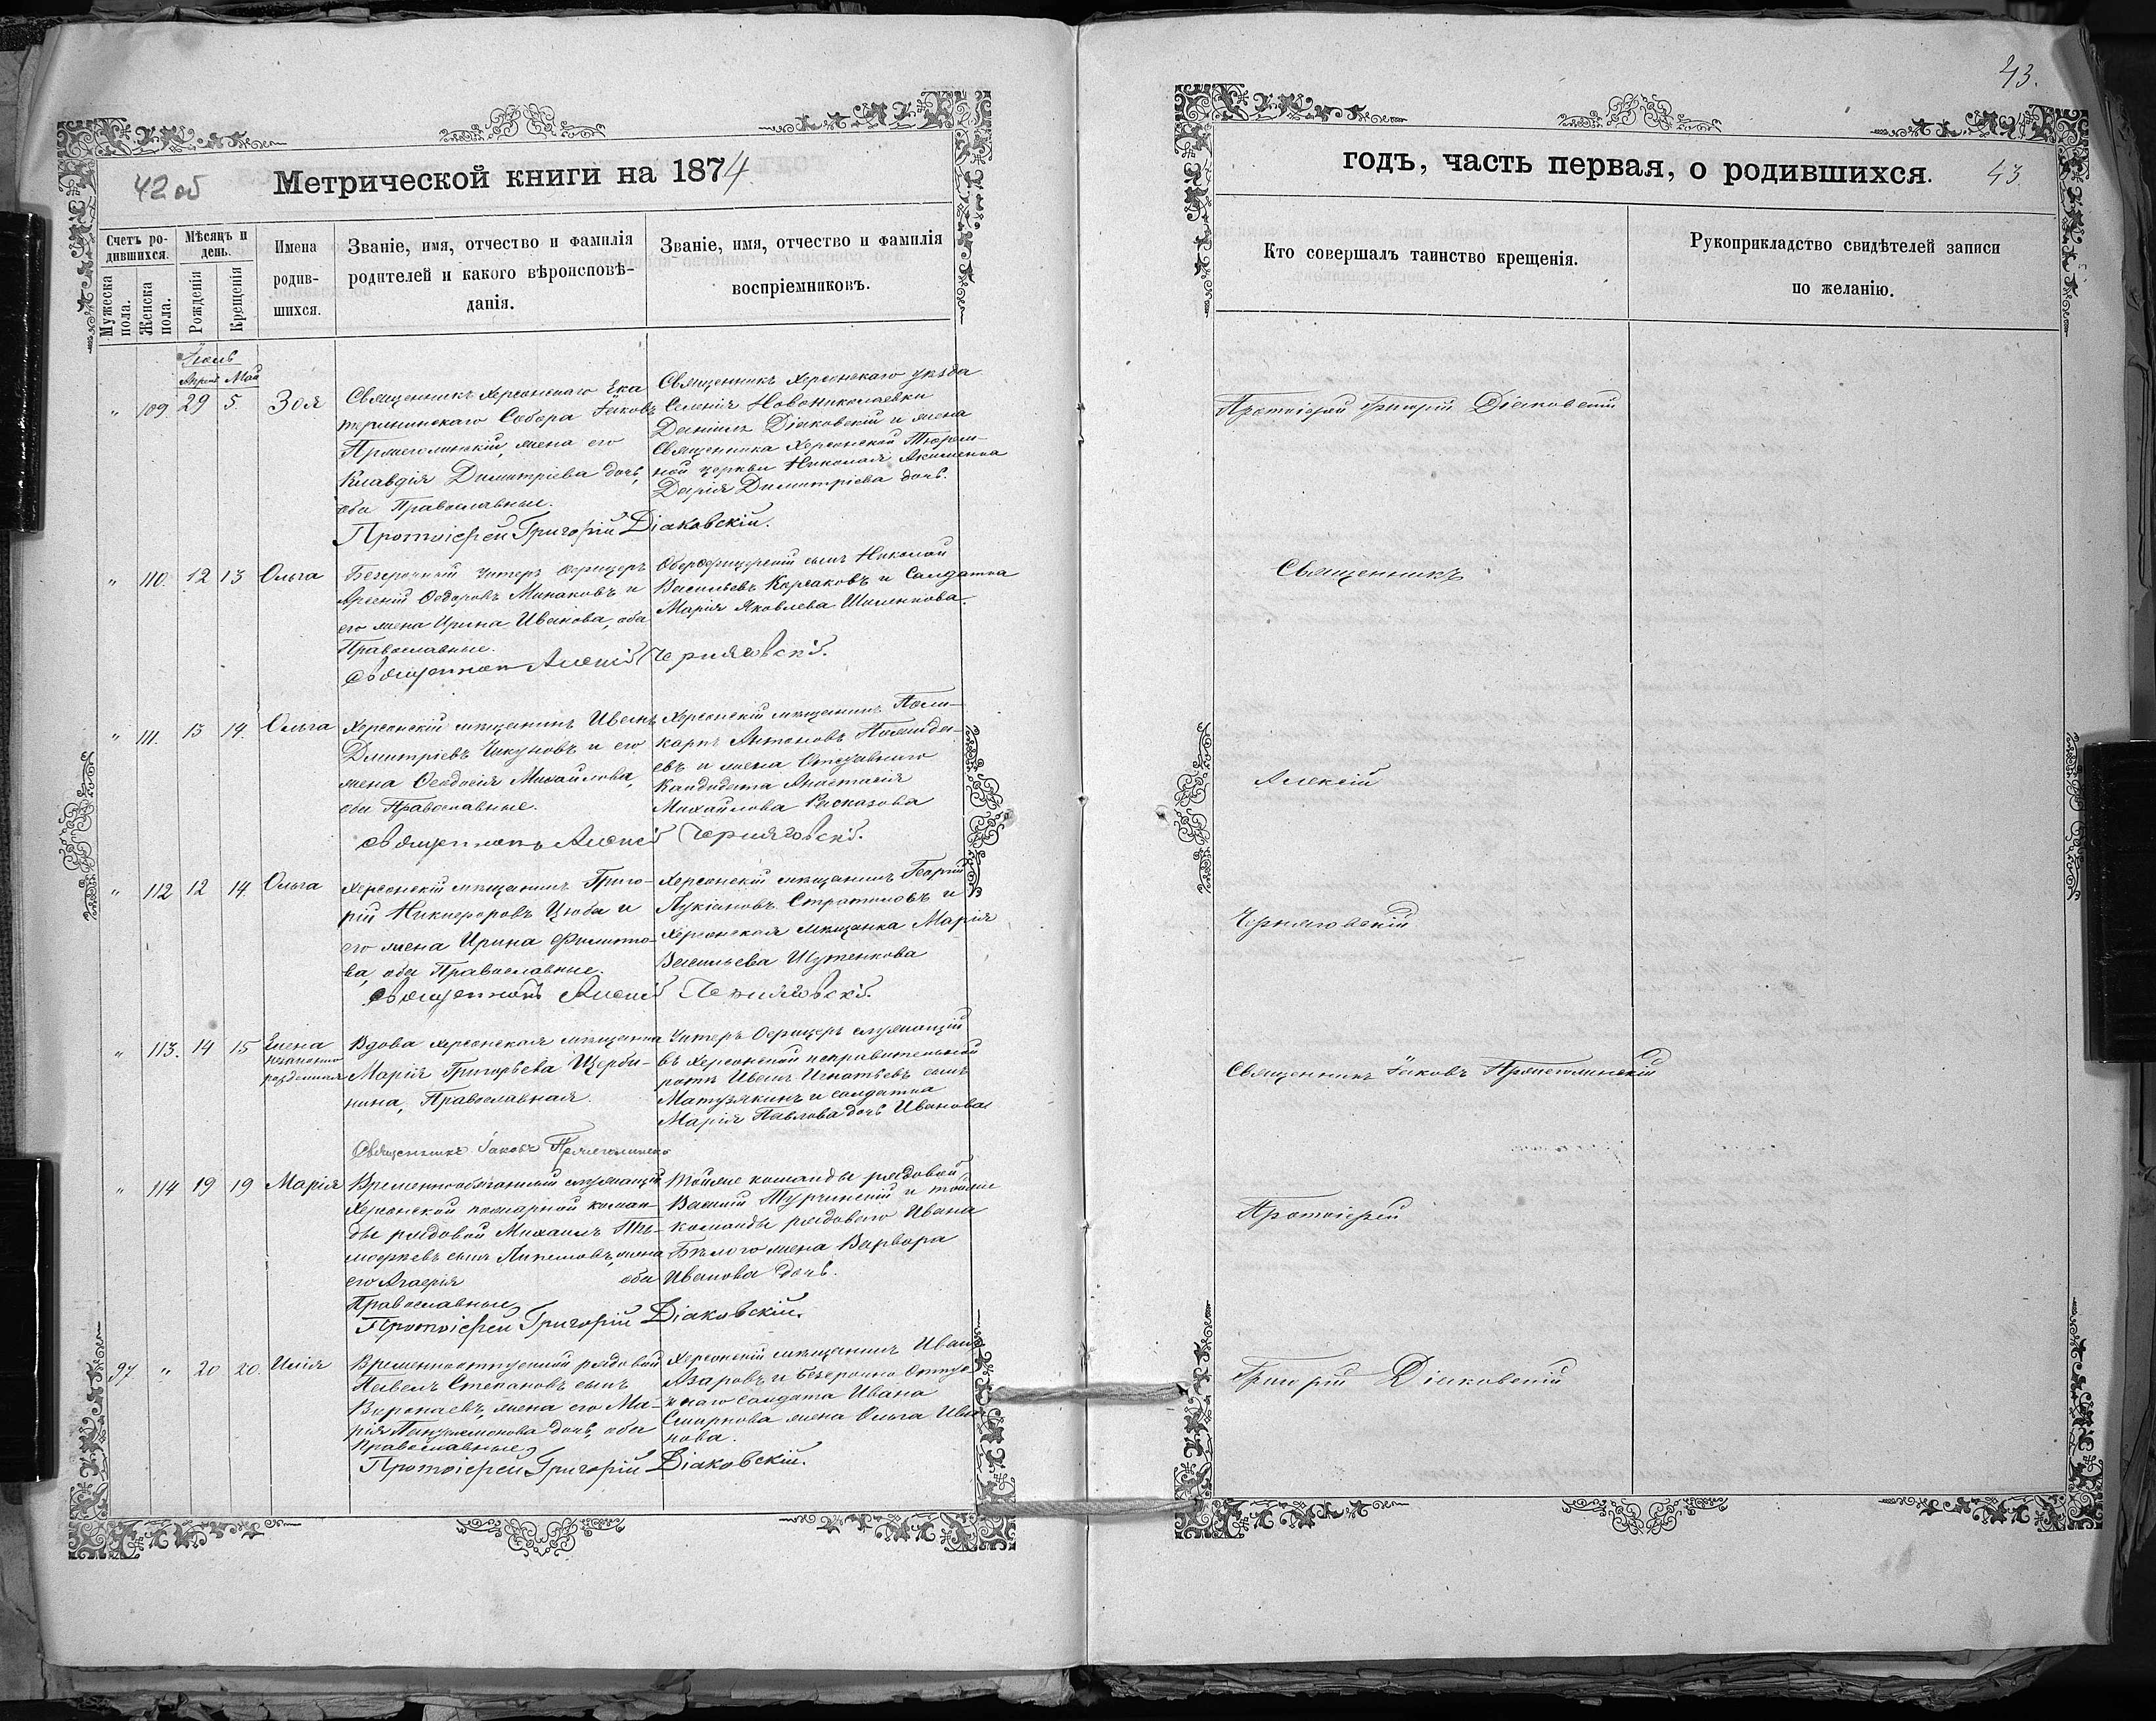 43.
42 об
Метрической книги на 1874
годъ, часть первая, о родившихся.
43.
Счетъ родившихся.
Мужеска пола.
Женска пола.
Мѣсяцъ и день.
Рожденія
Крещенія
Имена
родив-
шихся.
Званіе, имя, отчество и фамилія
родителей и какого вѣроисповѣ-
данія.
Званіе, имя, отчество и фамилія
воспріемниковъ.
Кто совершалъ таинство крещенія.
Рукоприкладство свидѣтелей записи
по желанію.
Май
" 109. 29 5. Зоя
Священникъ Херсонскаго Ека
терининскаго Собора Іаковъ
жена его
Клавдія Димитріева дочь,
оба Православные.
Священникъ Херсонскаго уѣзда
Селенія Новониколаевки
Даніилъ Діаковскій и жена
Священника Херсонской Тюрем-
ной церкви Николая Акименка
Дарія Димитріева дочь.
Протоіерей Григорій Діаковскій.
Протоіерей Григорій Діаковскій
" 110. 12 13 Ольга
Безсрочный Унтеръ Офицеръ
Арсеній Ѳедоровъ Минаковъ и
его жена Ирина Иванова, оба
Православные.
Оберофицерскій сынъ Николай
Васильевъ Корсаковъ и Салдатка
Марія Яковлева
Священникъ Алексій Черняговскій.
Священникъ
" 111. 13 14. Ольга
Херсонскій мѣщанинъ Иванъ
Дмитріевъ Чикуновъ и его
жена Ѳеодосія Михайлова,
оба Православные.
Херсонскій мѣщанинъ Поли-
карпъ Антоновъ
евъ и жена Отставнаго
Кандидата Анастасія
Михайлова Расказова
Священникъ Алексій Черняговскій.
Алексій
" 112 12 14. Ольга
Херсонскій мѣщанинъ Григо-
рій Никифоровъ Цюба и
его жена Ирина Филиппо-
ва, оба Православные.
Херсонскій мѣщанинъ Георгій
Лукіановъ и
Херсонская мѣщанка Марія
Васильева Шутенкова
Священникъ Алексій Черняговскій.
Черняговскій
" 113. 14 15 Елена
незаконно
рожденная
Вдова Херсонская мѣщанка
Марія Григорьева Щерби-
нина, Православная.
Унтеръ Офицеръ служащій
въ Херсонской исправительной
ротѣ Иванъ Игнатьевъ сынъ
и солдатка
Марія Павлова дочь Иванова
Священникъ Іаковъ
Священникъ Іаковъ
" 114 19 19 Марія
Временнообязанный служащій
Херсонской пожарной коман-
ды рядовой Михаилъ Ти-
мофеевъ сынъ жена
его Агафія оба
Православные
Тойже команды рядовой
Василій Турчинскій и тойже
команды рядоваго Ивана
Бѣлого жена Варвара
Иванова дочь.
Протоіерей Григорій Діаковскій.
Протоіерей
97 " 20 20. Илія
Временноотпускной рядовой
Павелъ Степановъ сынъ
Воропаевъ, жена его Ма-
рія Пантелемонова дочь, оба
Православные
Херсонскій мѣщанинъ Иванъ
Азаровъ и безсрочно отпус-
кнаго солдата Ивана
Смирнова жена Ольга Ива
нова.
Протоіерей Григорій Діаковскій.
Григорій Діаковскій